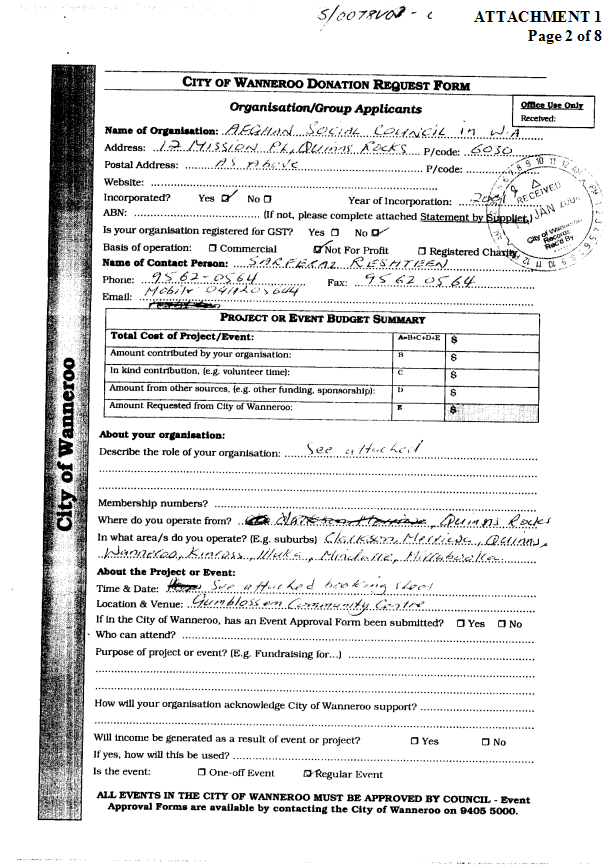 S/0078V02 - C
ATTACHMENT 1
Page 2 of 8
CITY OF WANNEROO DONATION REQUEST FORM
Organisation/Group Applicants
Office Use Only
Received:
Name of Organisation: AFGHAN SOCIAL COUNCIL in W.A
Address: 17 MISSION PL, QUINNS ROCKS P/code: 6030
Postal Address: AS Above P/code:
Website:
Incorporated? Yes ☑ No ☐ Year of Incorporation:
ABN: (If not, please complete attached Statement by Supplier.)
RECEIVED
JAN
City of Wanneroo
Records
Rec'd By
Is your organisation registered for GST? Yes ☐ No ☑
Basis of operation: ☐ Commercial ☑ Not For Profit ☐ Registered Charity
Name of Contact Person: RESHTEEN
Phone: 9562-0564 Fax: 9562 0564
Mobile
Email:
PROJECT OR EVENT BUDGET SUMMARY
Total Cost of Project/Event: A=B+C+D+E $
Amount contributed by your organisation: B $
In kind contribution, (e.g. volunteer time): C $
Amount from other sources, (e.g. other funding, sponsorship): D $
Amount Requested from City of Wanneroo: E $
City of Wanneroo
About your organisation:
Describe the role of your organisation: See attached
Membership numbers?
Where do you operate from? Quinns Rocks
In what area/s do you operate? (E.g. suburbs) Clarkson, Merriwa, Quinns,
Wanneroo, Kinross, Illuka, Mindarie, Mirrabooka
About the Project or Event:
Time & Date: See attached booking sheet
Location & Venue: Gumblossom Community Centre
If in the City of Wanneroo, has an Event Approval Form been submitted? ☐ Yes ☐ No
Who can attend?
Purpose of project or event? (E.g. Fundraising for...)
How will your organisation acknowledge City of Wanneroo support?
Will income be generated as a result of event or project? ☐ Yes ☐ No
If yes, how will this be used?
Is the event: ☐ One-off Event ☑ Regular Event
ALL EVENTS IN THE CITY OF WANNEROO MUST BE APPROVED BY COUNCIL - Event
Approval Forms are available by contacting the City of Wanneroo on 9405 5000.